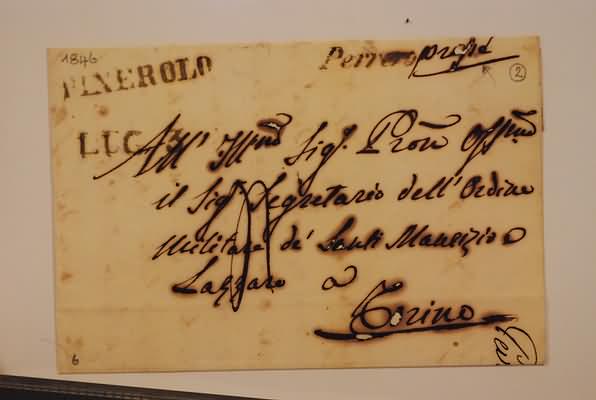 1846
PINEROLO
Perrero
2
LUG
All' Ill.mo Sig.r Pron
il Sig.r Segretario dell'Ordine
Militare de' Santi Maurizio e
Lazzaro a
Torino
6